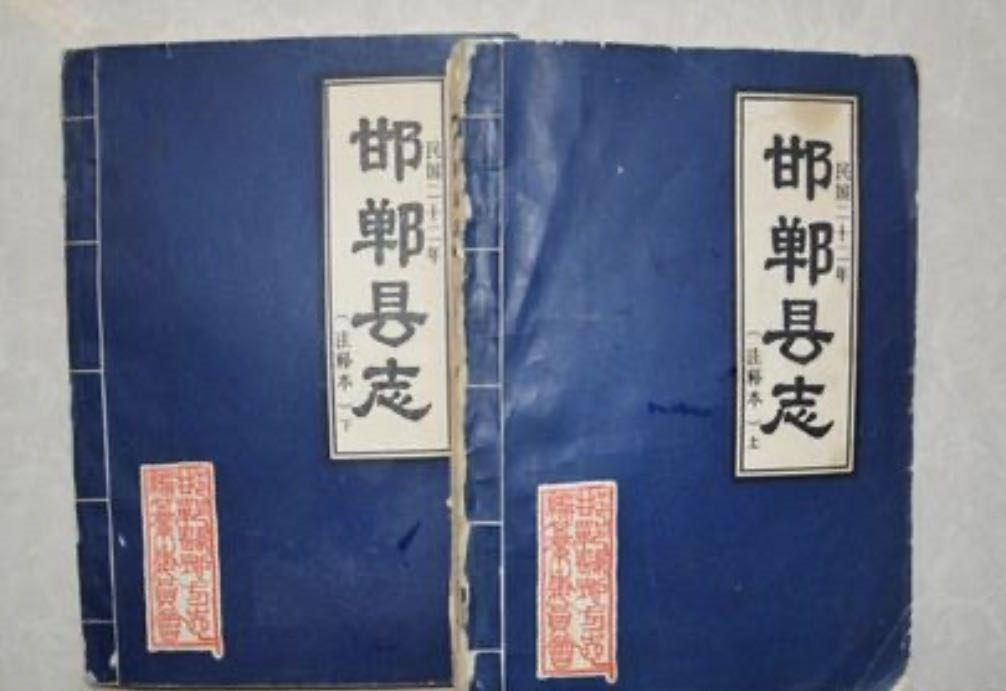 民国二十二年
邯郸县志
（注释本）下
民国二十二年
邯郸县志
（注释本）上